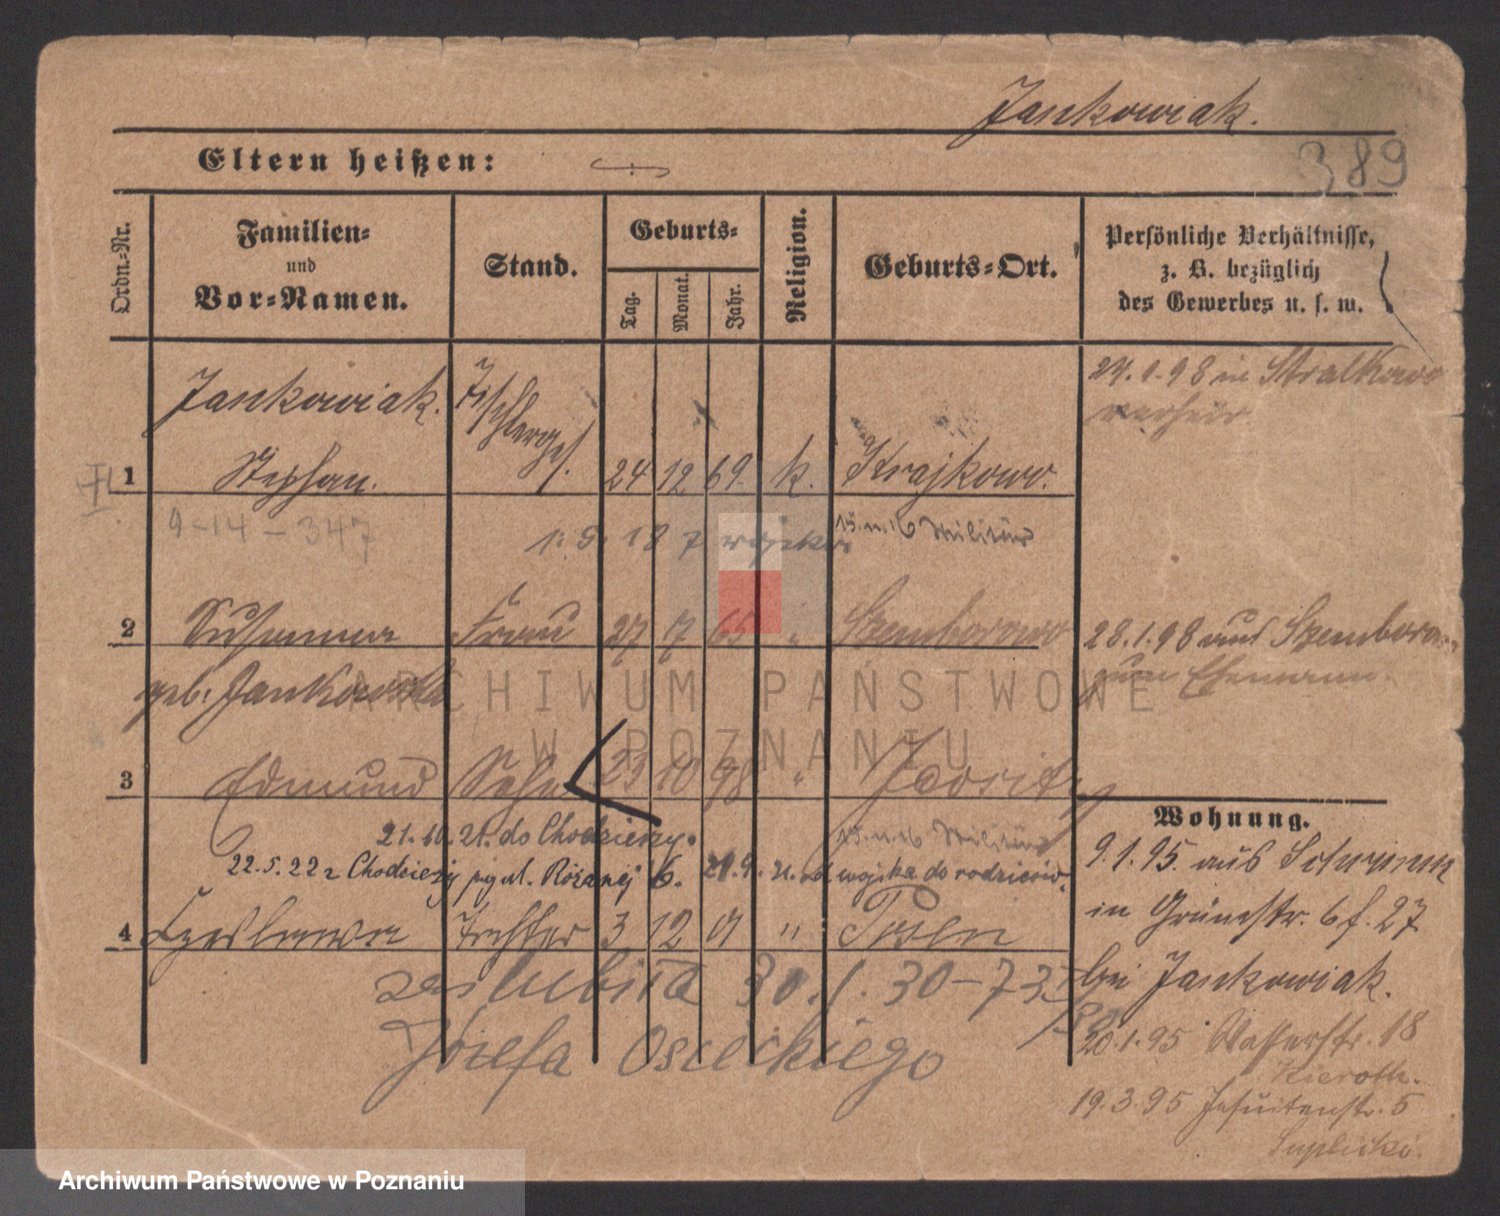 Jankowiak.
Eltern heißen:
389
Ordn.-Nr.
Familien-
und
Vor-Namen.
Stand.
Geburts-
Tag.
Monat.
Jahr.
Religion.
Geburts-Ort.
Persönliche Verhältnisse,
z. B. bezüglich
des Gewerbes u. s. w.
Jankowiak. Tischlerges.
1 Stephan. 24 12 69. k. Krajkowo.
24.1.98 in Stralkowo
verheir.
9-14-347
1. 9. 18 z wojska
15.u.16 Militär
2 Susanna Frau 27 7 65 " Szemborowo
geb. Jankowska
28.1.98 aus Szemborowo
zum Ehemann.
3 Edmund Sohn 23 10 98 " Jersitz
21.10.21. do Chodzieży.
15.u.16 Militär
22.5.22 z Chodzieży ul. Różanej 6. 29.9.21. od wojska do rodziców.
4 Czeslawa Tochter 3 12 01 " Posen
zaslubiła 30.1.30-73
Józefa Osieckiego
Wohnung.
9.1.95. aus
in Grünestr. 6 f. 27
bei Jankowiak.
20.1.95 Wasserstr. 18
19.3.95 Jesuitenstr. 5
ARCHIWUM PAŃSTWOWE
W POZNANIU
Archiwum Państwowe w Poznaniu